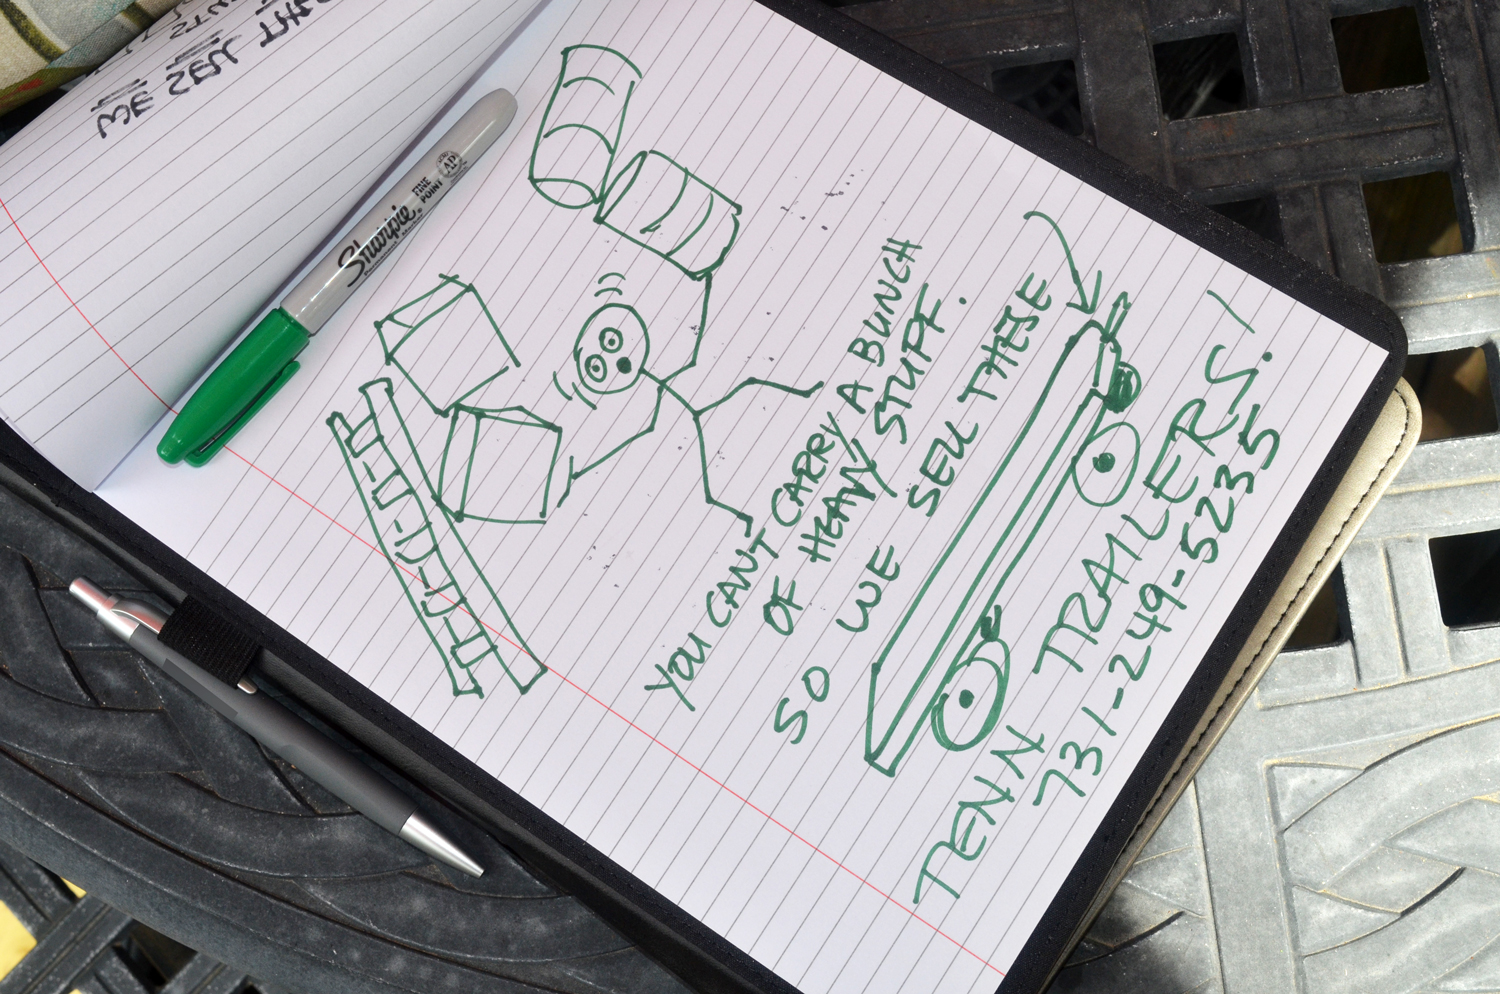 WE SELL THAT
Sharpie
FINE
POINT
AP
YOU CANT CARRY A BUNCH
OF HEAVY STUFF.
SO WE SELL THESE
TENN TRAILERS!
731-249-5235